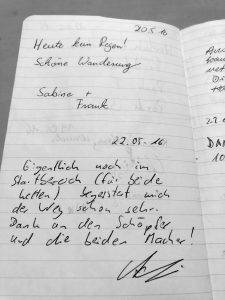 20.5.16
Heute kein Regen!
Schöne Wanderung
Sabine +
Frank
22.05.16
Eigentlich noch im
Startbereich (für beide
Hütten) begeistert mich
der Weg schon sehr.
Dank an den Schöpfer
und die beiden Macher!